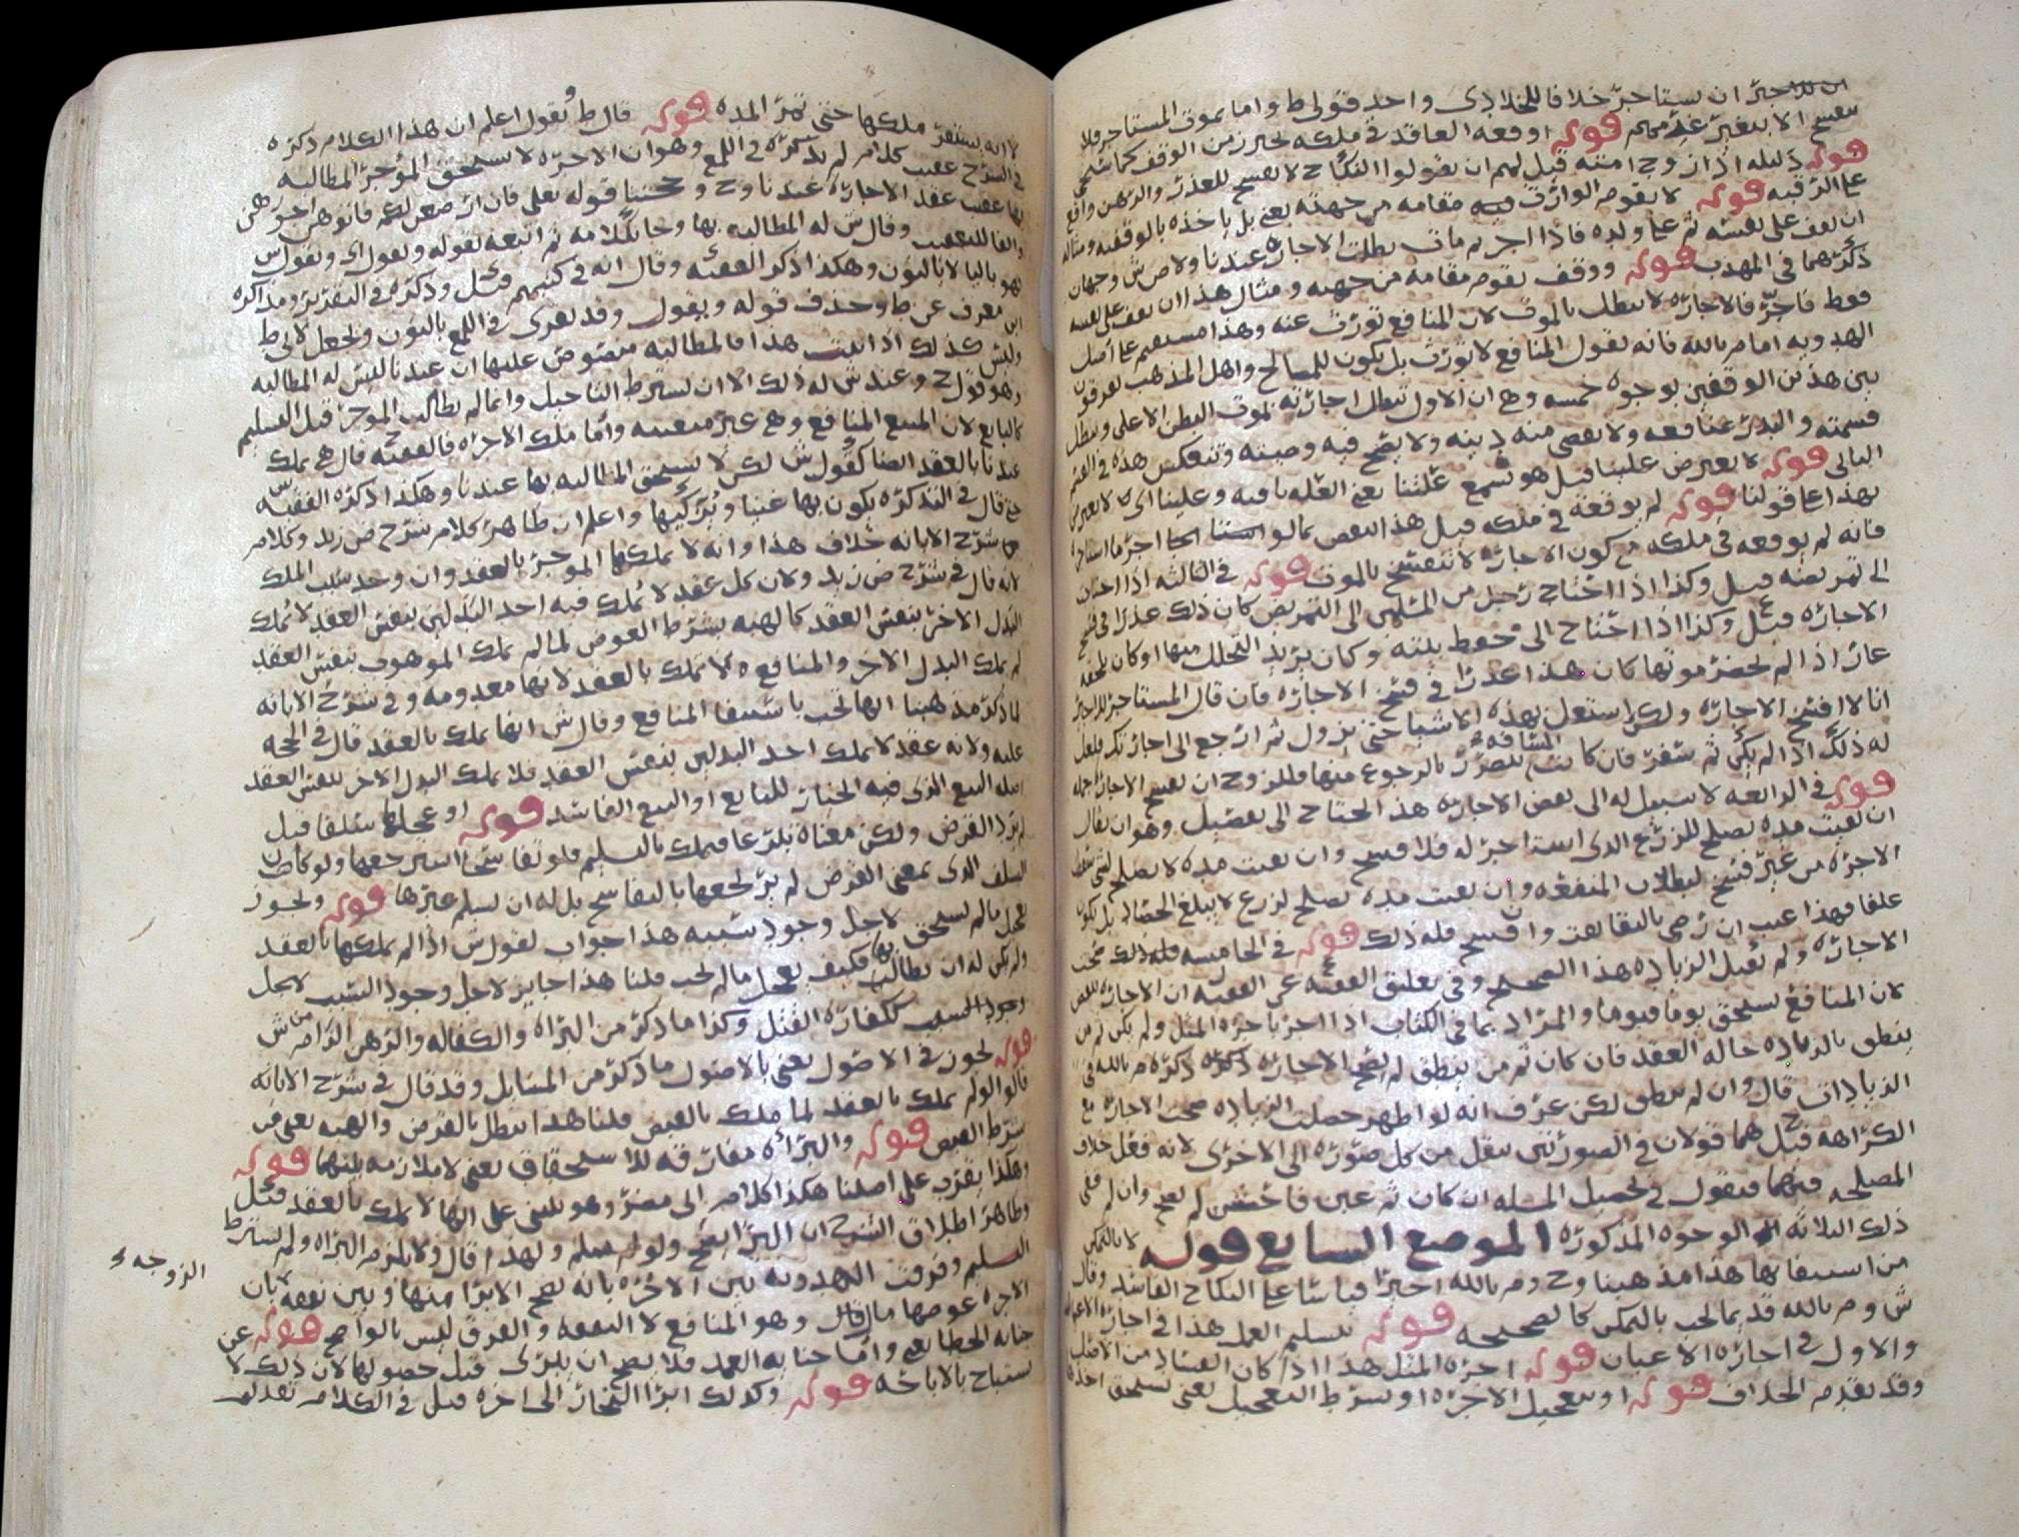 ان للاجير ان يستاجر خلافا للخلا ذى واحد قولى ط واما بموت المستاجر فلا
ينفسخ الا بتغير غلة قوله اوقعه العاقد في ملكه تحرز من الوقف كما سيجي
قوله دليله اذا زوج امته قيل لهم ان يقولوا النكاح لا يفسخ للعذر والرهن واقع
على الرقبه قوله لا يقوم الوارث فيه مقامه من جهته يعني بل ياخذه بالوقفيه ومثاله
ان يقف على نفسه ثم على ولده فاذا اجر ثم مات بطلت الاجاره عندنا ولاص ش وجهان
ذكرهما في المهذب قوله ووقف يقوم مقامه من جهته ومثال هذا ان يقف على نفسه
فقط فاجر فالاجاره لا تبطل بالموت لان المنافع تورث عنه وهذا مستقيم على اصل
الهدويه اما م بالله فانه يقول المنافع لا تورث بل يكون للمصالح واهل المذهب يفرقون
بين هذين الوقفين بوجوه خمسه وهي ان الاول تبطل اجارته بموت البطن الاعلى وتبطل
قسمته والنذر بمنافعه ولا يقضى منه دينه ولا يصح فيه وصيته وتنعكس هذه في القسم
الثاني قوله لا يعترض علينا قيل هو بسمع علتنا يعني العله ثابته وعلينا اي لا يعترض
بهذا على قولنا قوله لم يوقعه في ملكه قيل هذا ينتقض بما لو اجر ما استاجر
فانه لم يوقعه في ملكه مع كون الاجاره لا تنفسخ بالموت قوله في الثالثه اذا احتاج
الى تمريضه قيل وكذا اذا احتاج رجل من المسلمين الى التمريض كان ذلك عذرا في فسخ
الاجاره قيل وكذا اذا احتاج الى حفظ بيته وكان يريد التحلل منها او كان يلحقه
عار اذا لم يحضر موتها كان هذا عذرا في فسخ الاجاره فان قال المستاجر للاجير
انا لا افسخ الاجاره ولكن استعمل بهذه الاشيا حتى يزول ثم ارجع الى اجارتك فلعل
له ذلك اذا لم يكن ثم سفر فان كانت المسافه تضر بالرجوع منها فللزوج ان يفسخ الاجاره
قوله في الرابعه لا سبيل له الى نقض الاجاره هذا يحتاج الى تفصيل وهو ان يقال
ان بقيت مده تصلح للزرع الذي استاجر له فلا فسخ وان بقيت مده لا يصلح لشي سقط
الاجره من غير فسخ لبطلان المنفعه وان بقيت مده تصلح لزرع لا يبلغ الحصاد بل يكون
علفا فهذا عيب ان رضى بالبقا بقت وان فسخ فله ذلك قوله في الخامسه فله ذلك صحت
الاجاره ولم تقبل الزياده هذا الصحيح وفي تعليق الفقيه عن الفقيه ان الاجاره تنتقض
لان المنافع تستحق يوما فيوما والمراد بما في الكتاب اذا اجر باجره المثل ولم يكن ثم من
ينطق بالزياده حاله العقد فان كان ثم من ينطق لم يصح الاجاره ذكره م بالله في
الزيادات قال وان لم ينطق لكن عرف انه لو اظهر حصلت الزياده صحت الاجاره مع
الكراهه قيل ح هما قولان في الصورتين ينقل من كل صوره الى الاخرى لانه فعل خلاف
المصلحه فيهما فنقول في تحصيل المسله ان كان ثم غبن فاحش لم يصح وان لم ففي
ذلك الثلاثه الوجوه المذكوره الموضع السابع قوله لا بالتمكن
من استيفا بها هذا مذهبنا وح وم بالله اخيرا قياسا على النكاح الفاسد وقال
ش وم بالله قديما تجب بالتمكن كالصحيحه قوله بتسليم العمل هذا في اجاره الاعمال
والاول في اجاره الاعيان قوله اجره المثل هذا اذا كان الفساد من الاصل
وقد تقدم الخلاف قوله او بتعجيل الاجره او بشرط التعجيل يعني تستحق
لا انه يستقر ملكها حتى تمر المده قوله قال ط ونقول اعلم ان هذا الكلام ذكره
في الشرح عقيب كلام لم يذكره في اللمع وهو ان الاجره لا يستحق المؤجر المطالبه
بها عقيب عقد الاجاره عندنا وح وحجتنا قوله تعلى فان ارضعن لكم فاتوهن اجورهن
والفا للتعقيب وقال ش له المطالبه بها وحا بكلامه ثم اتبعه بقوله ونقول اي ونقول ش
فهو باليا لا بالنون وهكذا ذكر الفقيه وقال انه في كتبهم قيل وذكره في التقرير ومذاكره
ابن معرف عن ط وحذف قوله ويقول وقد يقرى في اللمع بالنون ويجعل لابي ط
وليس كذلك اذا ثبت هذا فالمطالبه منصوص عليها ان عندنا ليس له المطالبه
وهو قول ح وعند ش له ذلك الا ان يشترط التاجيل وانما لم يطالب الموجر قبل التسليم
كالبايع لان المبيع المنافع وهي غير متعينه واما ملك الاجره فالفقيه قال هي تملك
عندنا بالعقد ايضا كقول ش لكن لا يستحق المطالبه بها عندنا وهكذا ذكره الفقيه
قال في التذكره يكون بها غنيا ويزكيها واعلم ان ظاهر كلام شرح ض زيد وكلام
شرح الابانه خلاف هذا وانه لا يملكها الموجر بالعقد وان وجد سبب الملك
لانه قال في شرح ض زيد ولان كل عقد لا يملك فيه احد البدلين بنفس العقد لا يملك
البدل الاخر بنفس العقد كالهبه بشرط العوض لما لم يملك الموهوب بنفس العقد
لم يملك البدل الاخر والمنافع لا تملك بالعقد لانها معدومه وفي شرح الابانه
لما ذكر مذهبنا انها تجب باستيفا المنافع وقال ش انها تملك بالعقد قال في الحجه
عليه ولانه عقد لا يملك احد البدلين بنفس العقد فلا يملك البدل الاخر بنفس العقد
اصله البيع الذي فيه الخيار للبايع او البيع الفاسد قوله او عجلها سلفا قيل
لم يرد القرض ولكن معناه تبرعا فيملك بالتسليم فلو تفاسخا استرجعها ولو كان
السلف الذي بمعنى القرض لم يرجعها بالتفاسخ بل له ان يسلم غيرها قوله ويجوز
تعجيل ما لم يستحق لاجل وجود سببه هذا جواب لقول ش اذا لم يملكها بالعقد
ولم يكن له ان يطالب بها فكيف يعجل ما لم يجب قلنا هذا جايز لاجل وجود السبب لاجل
وجود السبب ككفاره القتل وكذا ما ذكر من البراه والكفاله والرهن الزام من ش
قوله تجوز في الاصول يعني بالاصول ما ذكر من المسايل وقد قال في شرح الابانه
قالوا لو لم يملك بالعقد لما ملك بالقبض قلنا هذا يبطل بالقرض والهبه يعني من
شرط القبض قوله والبراه مفارقه للاستحقاق يعني لا ملازمه بينهما قوله
وهكذا يقرب على اصلنا هكذا كلام ابي مضر وهو مبني على انها لا تملك بالعقد قيل
وظاهر اطلاق الشرح ان البرا يصح ولو لم يسلم ولهذا قال ولا يلزم البراه ولم يشترط
التسليم وفرقت الهدويه بين الاجره بانه يصح الابرا منها وبين نفقه بان
الزوجه
الاجره عوضها مال وهو المنافع لا النفقه والفرق ليس بالواضح قوله عن
جنايه الخطا يعني واما جنايه العمد فلا يصح ان يبري قبل حصولها لان ذلك لا
يستباح بالاباحه قوله وكذلك ابرا الى اخره قيل في الكلام تقديم